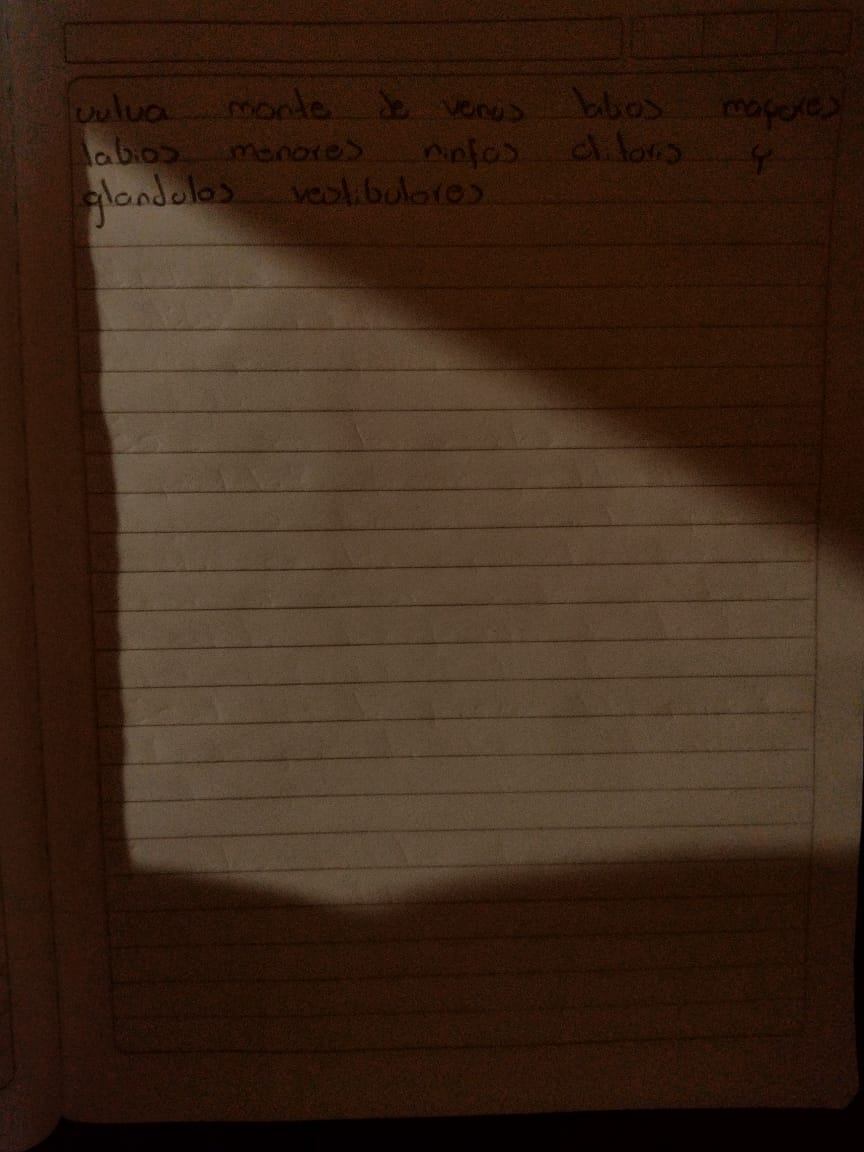 vulva monte de venus labios mayores
labios menores ninfas clitoris y
glandulas vestibulares